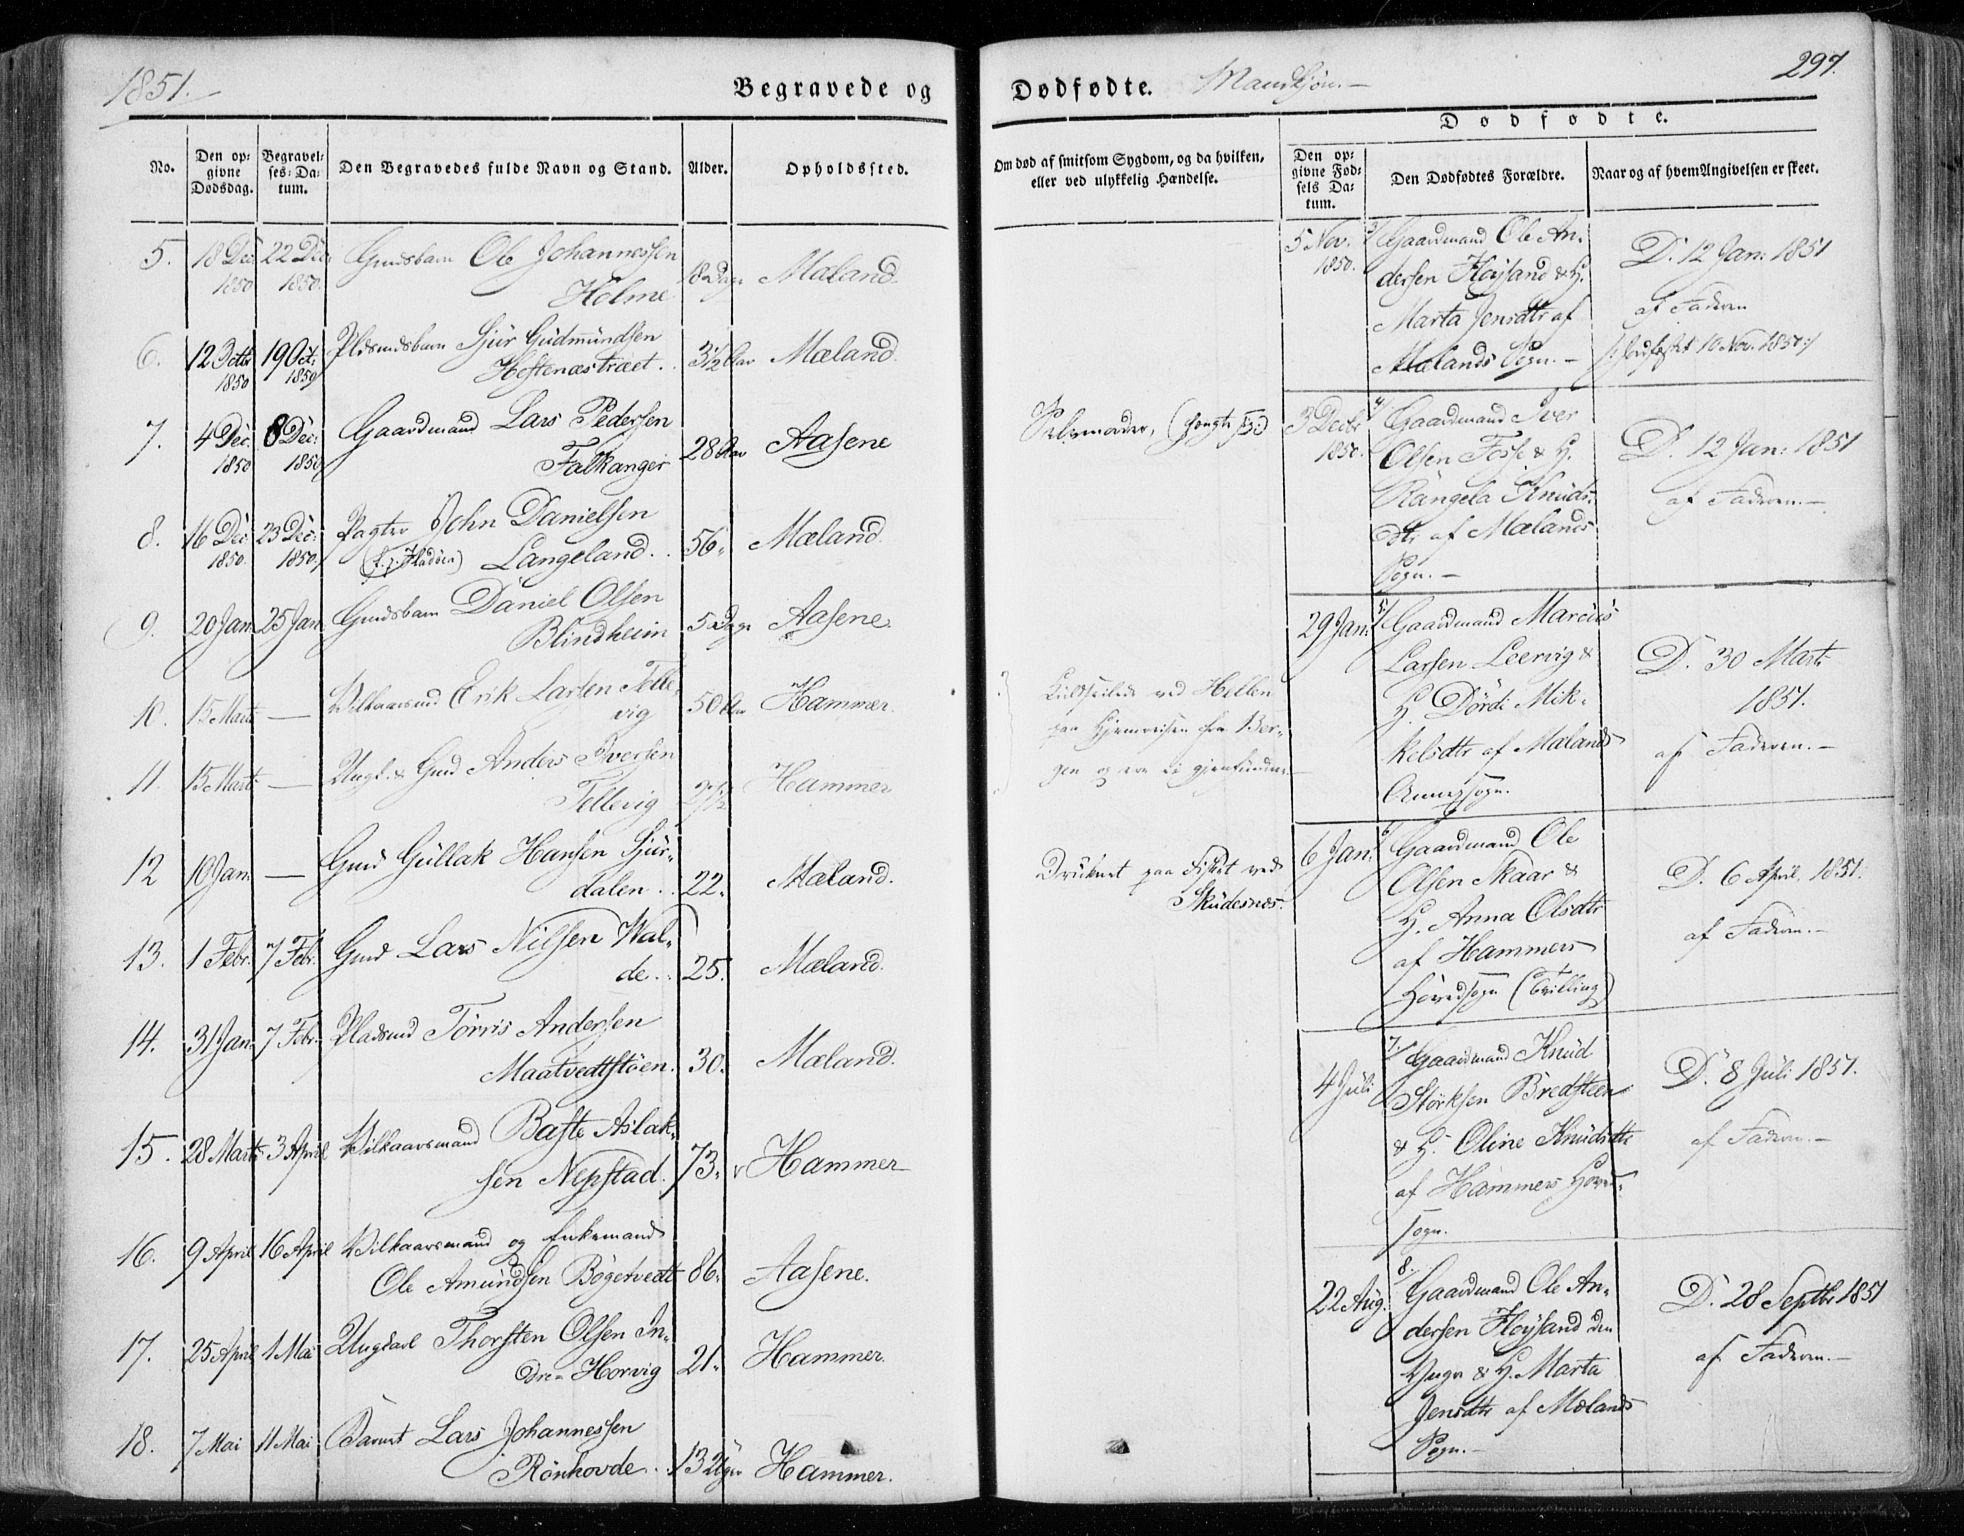 1851.
Begravede og
No.
Den op-
givne
Dødsdag.
Begravel-
ses-Da-
tum.
Den Begravedes fulde Navn og Stand.
Alder.
Opholdssted.
5. 18 Dec: 22 Dec: Gmdsbarn Ole Johannessen
1850 1850. Holme 8 Dage Mæland.
6. 12 Octbr 19 Oct: Pldsmdsbarn Sjur Gudmundsen
1850 1850 Hostenæstræet. 3½ Aar Mæland
7. 4 Dec: 8 Dec: Gaardmand Lars Pedersen
1850 1850 Falkanger 28 Aar Aasene
8. 16 Dec: 23 Dec: Pagter John Danielsen
1850. 1850. Langeland. 56. Mæland.
9. 20 Jan: 25 Jan: Gmdsbarn Daniel Olsen
Blindheim 5 Dage Aasene
10. 15 Mart: — Vilkaarsmd Erik Larsen Telle-
vig 50 Aar Hammer.
11. 15 Mart: — Ungk. & Gmd Anders Iversen
Tellevig 27½ Hammer
12 10 Jan: — Gmd Gullak Hansen Sjur-
dalen . 22. Mæland.
13. 1 Febr. 7 Febr. Gmd Lars Nilsen Wal-
de. 25. Mæland.
14. 31 Jan: 7 Febr. Pladsmd Torris Andersen
Maatvedtstøen. 30. Mæland.
15. 28 Marts 3 April Vilkaarsmand Baste Aslak-
sen Nepstad. 73. Hammer
16. 9 April 16 April Vilkaarsmand og Enkemand
Ole Amundsen Bøgetvedt 86. Aasene.
17. 25 April 1 Mai Ungkarl Thorsten Olsen In-
dre-Horvig 21. Hammer.
18. 7 Mai 11 Mai Barnet Lars Johannessen
Rønhovde . 13 Uger Hammer.
Dødfødte. Mandkjøn.—
297.
Om død af smitsom Sygdom, og da hvilken,
eller ved ulykkelig Hændelse.
Dødfødte.
Den op-
givne Fød-
sels Da-
tum.
Den Dødfødtes Forældre.
Naar og af hvem Angivelsen er skeet.
Selvmorder, (hængte sig)
Kuldseilede ved Hellen
paa Hjemreisen fra Ber-
gen og ere ei gjenfundne.
Druknet paa Fisket ved
Skudesnæs.
5 Nov. Gaardmand Ole An- D. 12 Jan: 1851
1850. dersen Høysand & H. af Faderen
Marta Jensdtr af
Mælands Sogn.— 10 Nov. 1850
3 Decbr 4/ Gaardmand Iver
1850. Olsen Fosse & H. D. 12 Jan: 1851
Rangela Knuds- af Faderen.—
dtr af Mælands
Sogn.—
29 Jan: 5/ Gaardmand Marcus
Larsen Leervig & D. 30 Mart:
H. Dørdi Mik- 1851.
kelsdtr af Mælands af Faderen.—
Annexsogn.
6 Jan: 6/ Gaardmand Ole
Olsen Skaar & D. 6 April 1851.
H. Anna Olsdtr af Faderen.—
af Hammers
Hovedsogn (Tvilling)
7. Gaardmand Knud D. 8 Juli 1851.
4 Juli Størksen Bredsteen
& H. Oline Knudsdtr af Faderen.—
af Hammers Hoved-
sogn.
8. Gaardmand Ole An- D. 28 Septbr 1851
22 Aug. dersen Høysand den af Faderen.—
Yngre & H. Marta
Jensdtr af Mælands
Sogn.—